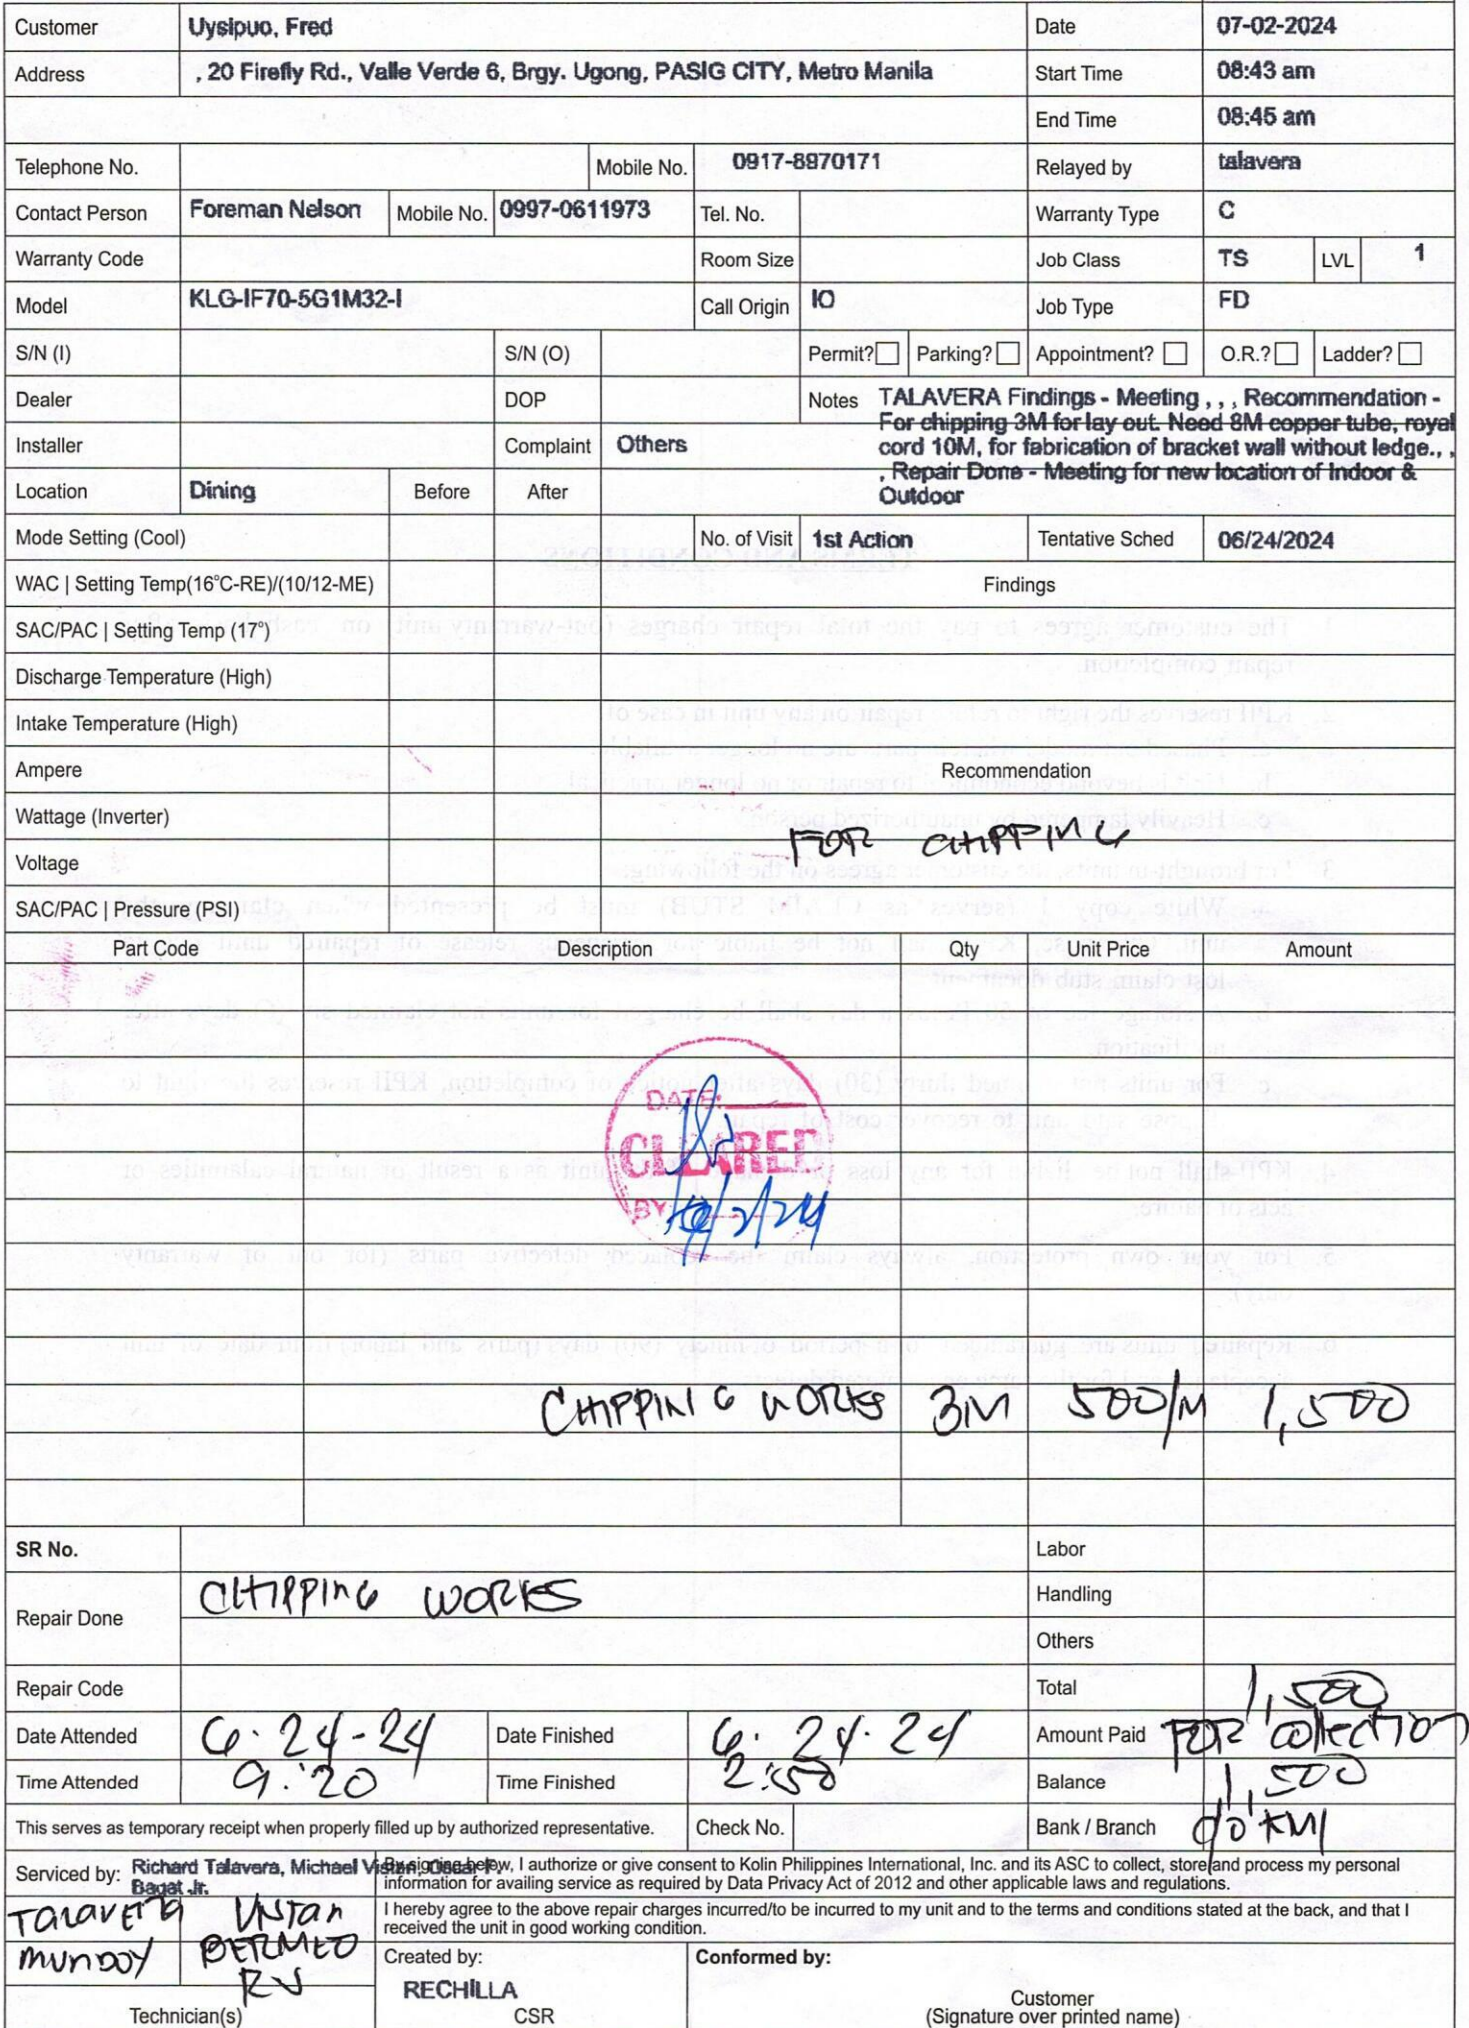 Customer Uysipuo, Fred Date 07-02-2024
Address , 20 Firefly Rd., Valle Verde 6, Brgy. Ugong, PASIG CITY, Metro Manila Start Time 08:43 am
End Time 08:45 am
Telephone No. Mobile No. 0917-8970171 Relayed by talavera
Contact Person Foreman Nelson Mobile No. 0997-0611973 Tel. No. Warranty Type C
Warranty Code Room Size Job Class TS LVL 1
Model KLG-IF70-5G1M32-I Call Origin IO Job Type FD
S/N (I) S/N (O) Permit? Parking? Appointment? O.R.? Ladder?
Dealer DOP Notes TALAVERA Findings - Meeting , , , Recommendation -
For chipping 3M for lay out. Need 8M copper tube, royal
Installer Complaint Others cord 10M, for fabrication of bracket wall without ledge., ,
, Repair Done - Meeting for new location of Indoor &
Location Dining Before After Outdoor
Mode Setting (Cool) No. of Visit 1st Action Tentative Sched 06/24/2024
WAC | Setting Temp(16°C-RE)/(10/12-ME) Findings
SAC/PAC | Setting Temp (17°)
Discharge Temperature (High)
Intake Temperature (High)
Ampere Recommendation
Wattage (Inverter)
FOR CHIPPING
Voltage
SAC/PAC | Pressure (PSI)
Part Code Description Qty Unit Price Amount
DATE:
CLEARED
BY
CHIPPING WORKS 3M 500/M 1,500
SR No. Labor
CHIPPING WORKS Handling
Repair Done
Others
Repair Code Total 1,500
Date Attended 6-24-24 Date Finished 6-24-24 Amount Paid FOR COLLECTION
Time Attended 9:20 Time Finished 2:50 Balance 1,500
This serves as temporary receipt when properly filled up by authorized representative. Check No. Bank / Branch
Serviced by: Richard Talavera, Michael Vistan, Oscar P. Bagat Jr.
By signing below, I authorize or give consent to Kolin Philippines International, Inc. and its ASC to collect, store and process my personal
information for availing service as required by Data Privacy Act of 2012 and other applicable laws and regulations.
TALAVERA VISTAN
I hereby agree to the above repair charges incurred/to be incurred to my unit and to the terms and conditions stated at the back, and that I
received the unit in good working condition.
MUNDOY BERMEO
RV
Created by: Conformed by:
RECHILLA
Technician(s) CSR Customer
(Signature over printed name)